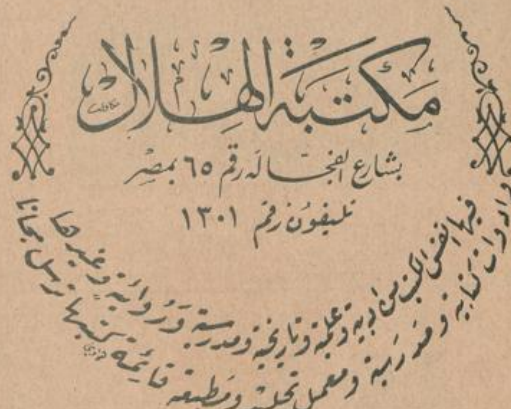 مكتبة الهلال
بشارع الفجاله رقم ٦٥ بمصر
تليفون رقم ١٣٠١
فيها انفس الكتب من ادبية وعلمية وتاريخية ومدرسية وروائية وغيرها
وادوات كتابية ومدرسية ومعمل تجليد ومطبعة قائمة كتبها ترسل مجانا